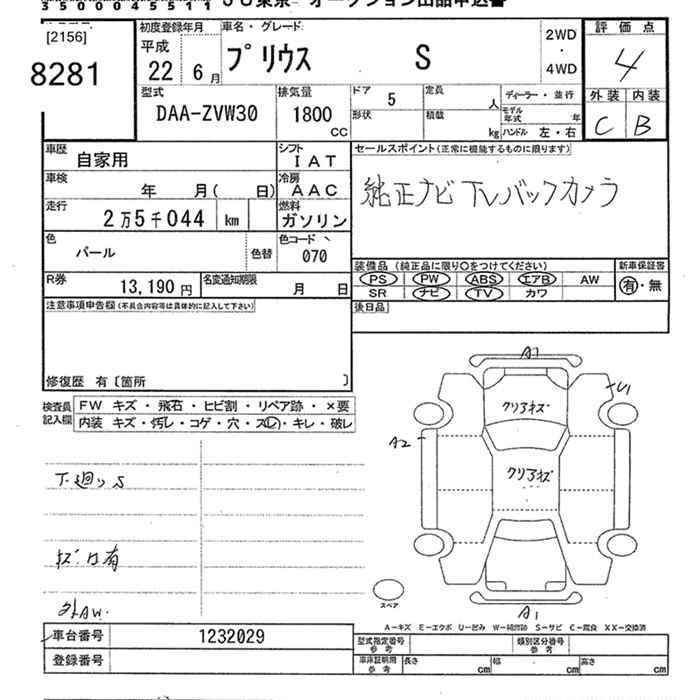 350004511 JU東京 オークション出品申込書
[2156]
8281
初度登録年月
平成
22 6月
車名・グレード
プリウス S
2WD
・
4WD
評価点
4
外装 内装
C B
型式
DAA-ZVW30
排気量
1800
CC
ドア 5
形状
定員 人
積載 kg
ディーラー・並行
モデル年式 年
ハンドル 左・右
車歴
自家用
シフト
IAT
車検
年 月( 日)
冷房
AAC
走行
2万5千044 km
燃料
ガソリン
色
パール
色替
色コード
070
R券
13,190円
名変通知期限
月 日
セールスポイント(正常に機能するものに限ります)
純正ナビ TV バックカメラ
装備品 (純正品に限り○をつけてください)
新車保証書
PS PW ABS エアB AW
SR ナビ TV カワ
有・無
後日品
注意事項申告欄(不具合内容等は具体的に記入して下さい)
修復歴 有〔箇所 〕
検査員
記入欄
FW キズ・飛石・ヒビ割・リペア跡・×要
内装 キズ・汚レ・コゲ・穴・スレ・キレ・破レ
下廻りS
キズ凹有
外AW.
A1
U1
A2
クリアキズ
クリアキズ
A1
スペア
A-キズ E-エクボ U-凹み W-補修跡 S-サビ C-腐食 XX-交換済
車台番号
1232029
登録番号
型式指定番号
参考
類別区分番号
参考
車庫証明用
参考
長さ cm
幅 cm
高さ cm